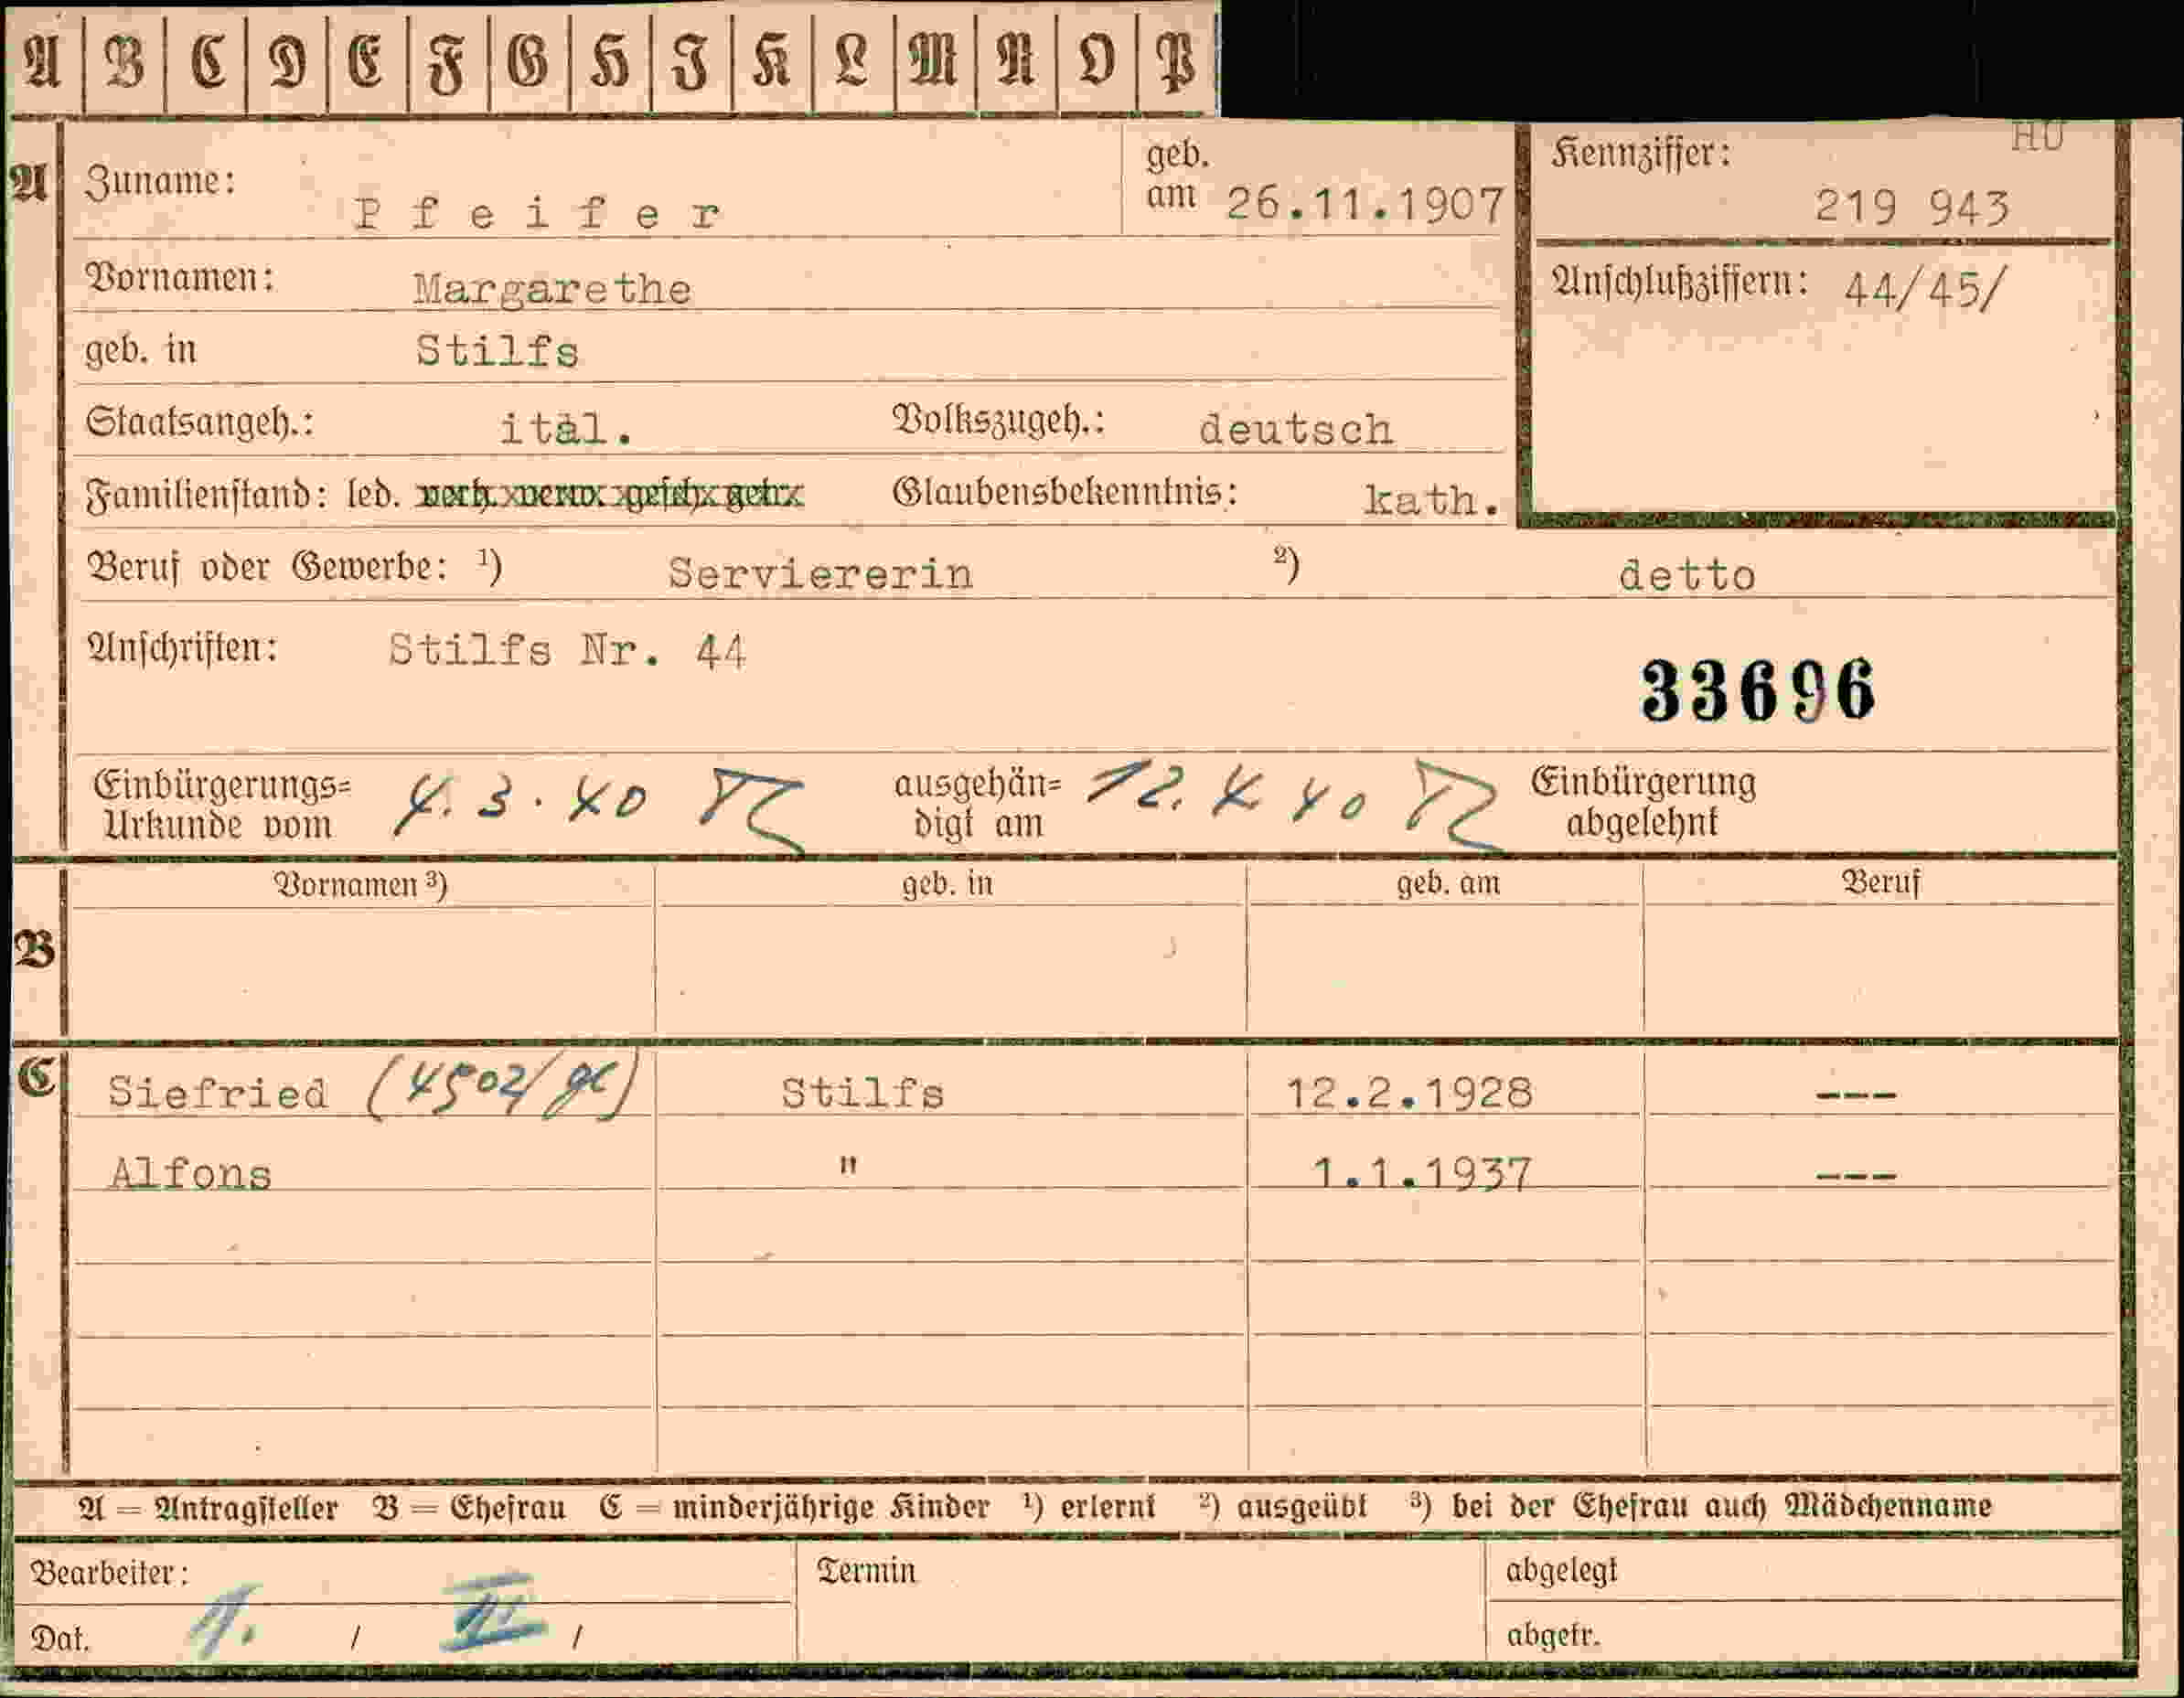 A B C D E F G H I K L M N O P
HU
A Zuname: Pfeifer geb. am 26.11.1907 Kennziffer: 219 943
Vornamen: Margarethe Anschlußziffern: 44/45/
geb. in Stilfs
Staatsangeh.: ital. Volkszugeh.: deutsch
Familienstand: led. verh. verw. gesch. getr. Glaubensbekenntnis: kath.
Beruf oder Gewerbe: ¹) Serviererin ²) detto
Anschriften: Stilfs Nr. 44
33696
Einbürgerungs= Urkunde vom 4.3.40 ausgehän= digt am 12.4.40 Einbürgerung abgelehnt
Vornamen ³) geb. in geb. am Beruf
B
C Siefried (4502/gc) Stilfs 12.2.1928 ---
Alfons " 1.1.1937 ---
A = Antragsteller B = Ehefrau C = minderjährige Kinder ¹) erlernt ²) ausgeübt ³) bei der Ehefrau auch Mädchenname
Bearbeiter: Termin abgelegt
Dat. / / abgefr.